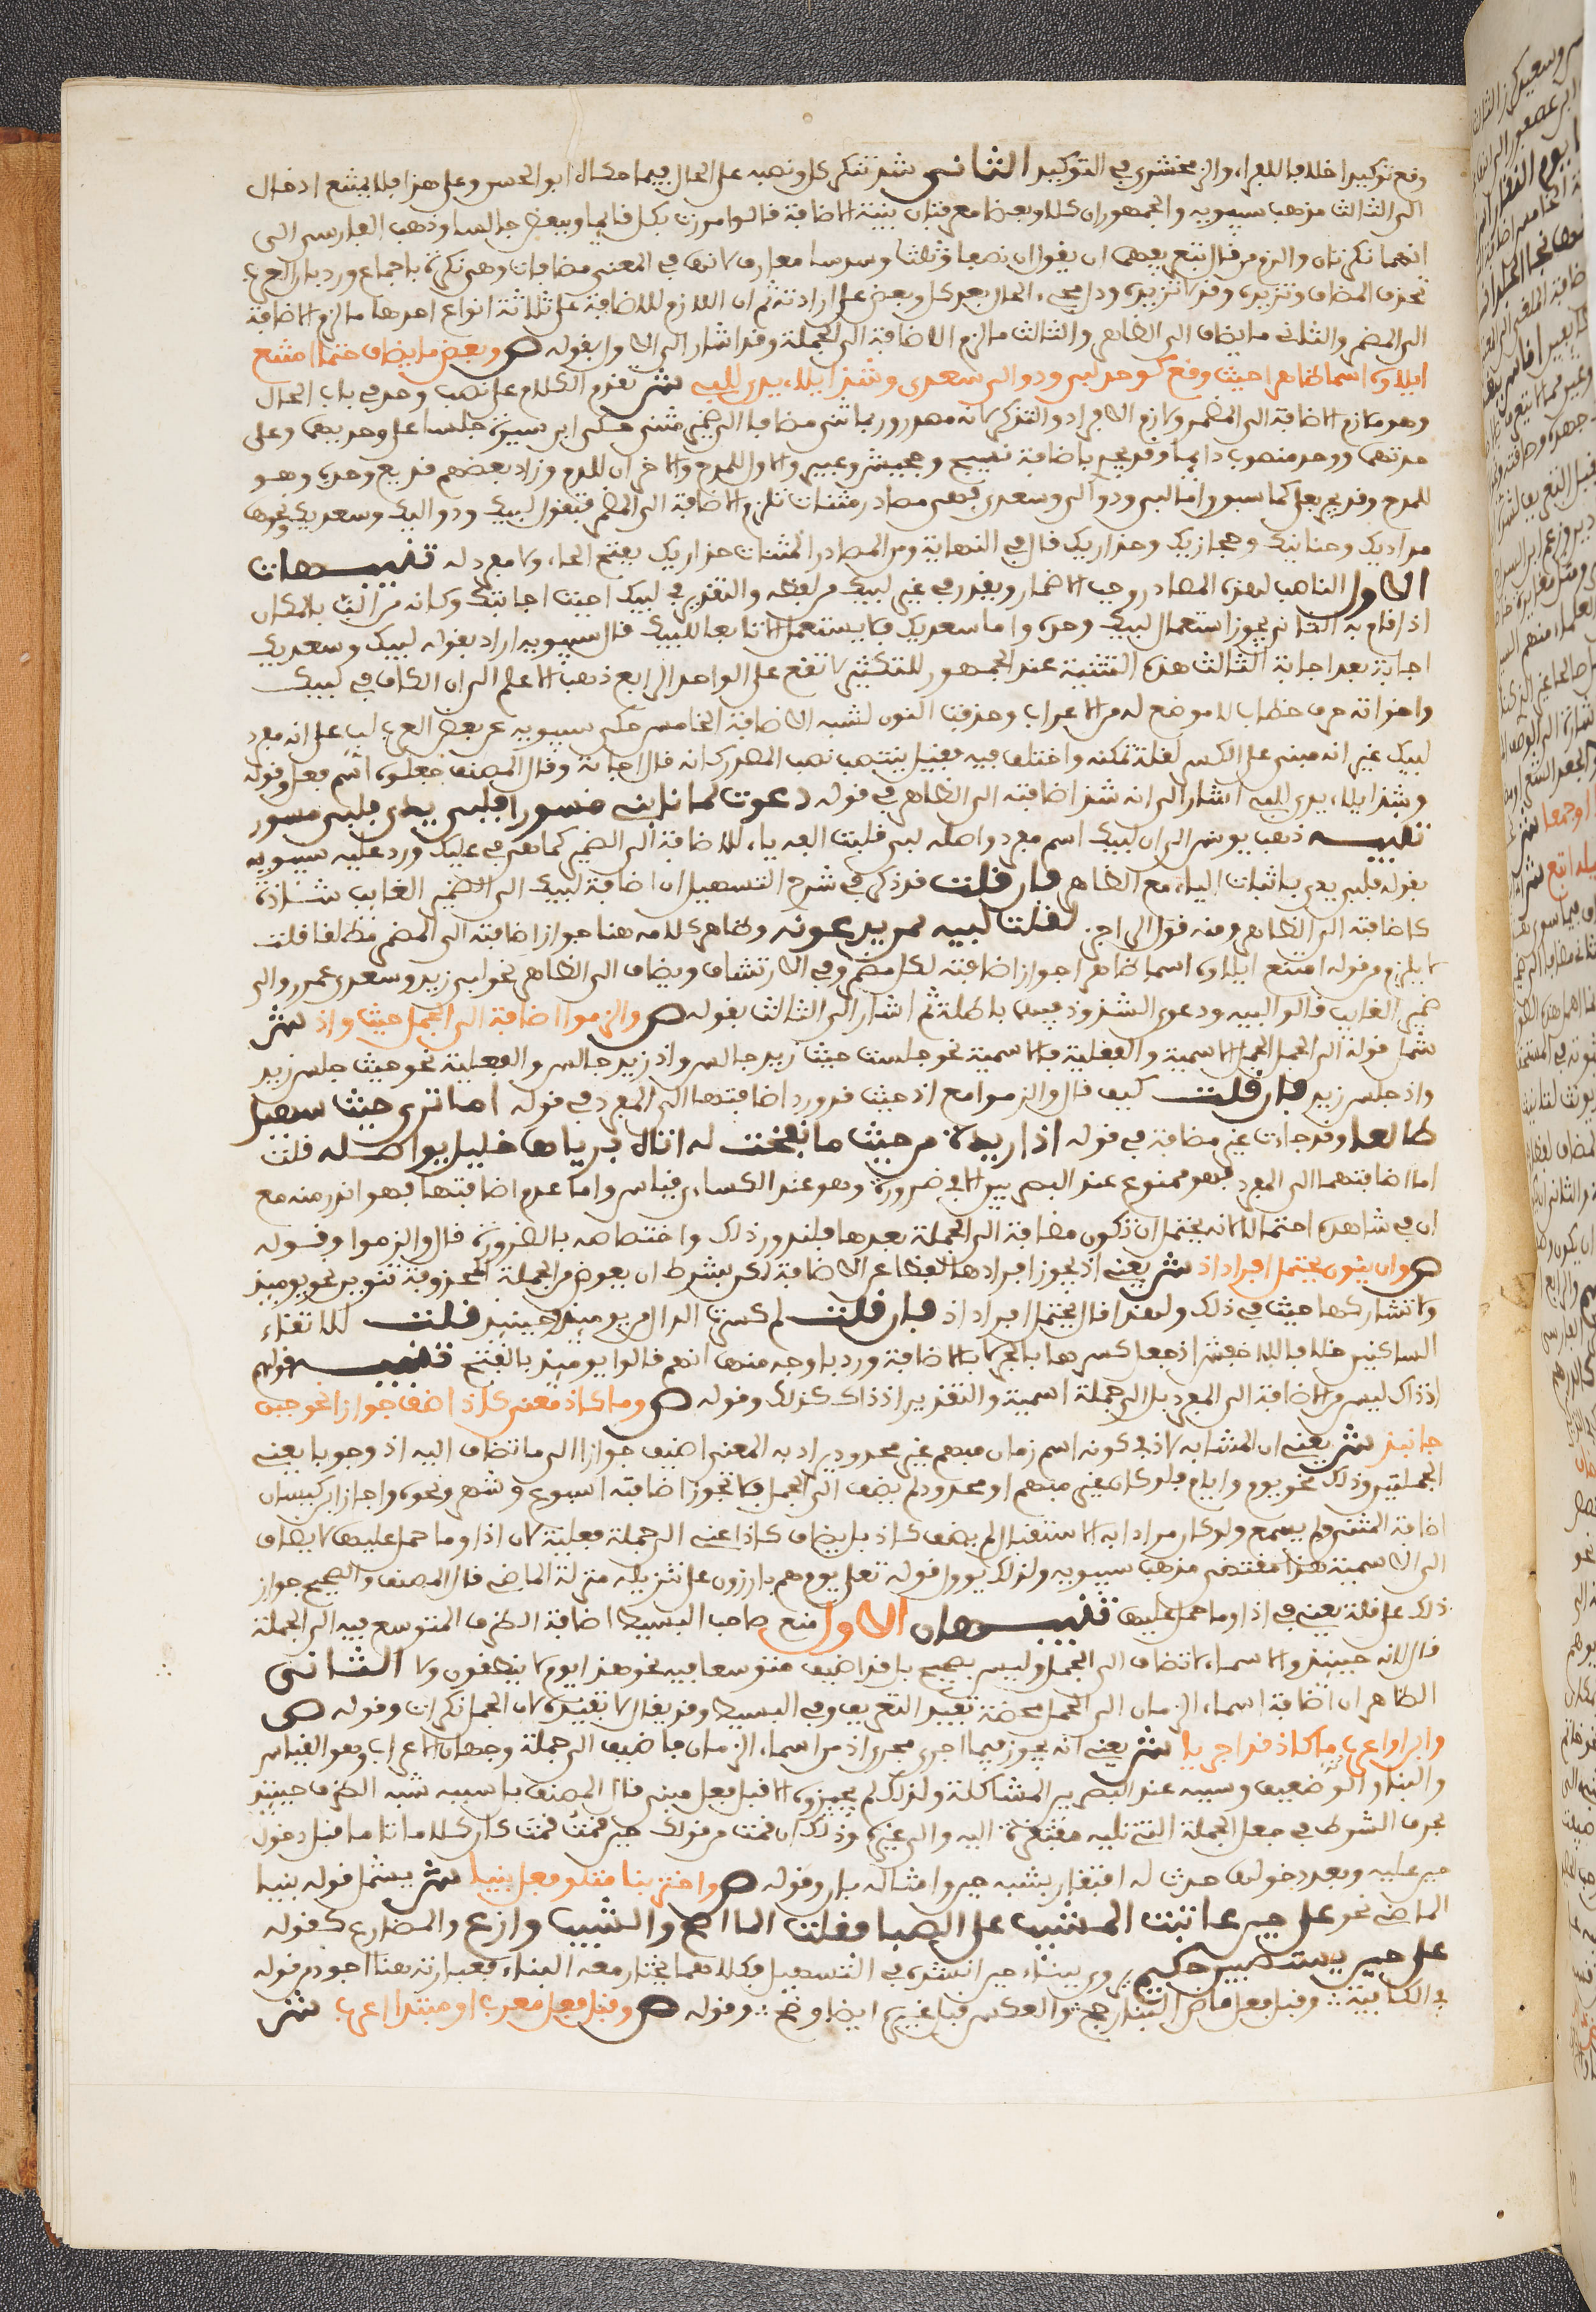 وقع توكيدا خلافا للفراء والزمخشري في التوكيد الثاني شذ تنكير كل ونصبه على الحال فيما حكاه ابو الحسن وعلى هذا فلا يمتنع ادخال
ال الثالث مذهب سيبويه والجمهور ان كلا وبعضا معرفتان بنية الاضافة قالوا مررت بكل قايما وببعض جالسا وذهب الفارسي الى
انهما نكرتان والزم من قال بتعريفهما ان يقول ان نصفا وثلثا وسدسا معارف لانها في المعنى مضافات وهي نكرة باجماع ورد بان العرب
تحذف المضاف وتريده وقد لا تريده ودل مجيء الحال بعد كل وبعض على ارادته ثم ان اللازم للاضافة على ثلاثة انواع احدها ما لزم الاضافة
الى المضمر والثاني ما يضاف الى الظاهر والثالث ما لزم الاضافة الى الجملة وقد اشار الى الاول بقوله ص وبعض ما يضاف حتما امتنع
ايلاؤه اسما ظاهرا حيث وقع كوحد لبي ودوالي سعدي وشذ ايلاء يدي للبي ش تقدم الكلام على نصب وحد في باب الحال
وهو ملازم الاضافة الى المضمر ولازم الافراد والتذكير لانه مصدر وربما ثني مضافا الى ضمير مثنى حكى ابن سيده جلسا على وحديهما وعلى
حدتهما ووحد منصوب دايما وقد يجر باضافة نسيج وجحيش وعيير والاول للمدح والاخران للذم وزاد بعضهم قريع وحده وهو
للمدح وقد يجر بعلى كما سبق واما لبي ودوالي وسعدي فهي مصادر مثنات تلزم الاضافة الى المضمر فتقول لبيك ودواليك وسعديك ونحوها
هذاذيك وحنانيك وحجازيك وحذاريك قال في النهاية ومن المصادر المثنات حذاريك بفتح الحاء ولا مفرد له تنبيهات
الاول الناصب لهذه المصادر وجب الاضمار ويقدر في غير لبيك من لفظه والتقدير في لبيك اجبت اجابتك وكانه من الب بالمكان
اذا قام به الثاني يجوز استعمال لبيك وحده واما سعديك فلا يستعمل الا تابعا للبيك قال سيبويه اراد بقوله لبيك وسعديك
اجابة بعد اجابة الثالث هذه التثنية عند الجمهور للتكثير لا تقع على الواحد الرابع ذهب الاعلم الى ان الكاف في لبيك
واخواته حرف خطاب لا موضع له من الاعراب وحذفت النون لشبه الاضافة الخامس حكى سيبويه عن بعض العرب لب على انه مفرد
لبيك غير انه مبني على الكسر لقلة تمكنه واختلف فيه فقيل ينتصب نصب المصدر كانه قال اجابة وقال المصنف جعلوه اسم فعل وقوله
وشذ ايلاء يدي للبي اشار الى انه شذ اضافته الى الظاهر في قوله دعوت لما نابني مسورا فلبي يدي فلبي مسور
تنبيه ذهب يونس الى ان لبيك اسم مفرد واصله لبى قلبت الفه ياء للاضافة الى الضمير كما هي في عليك ورد عليه سيبويه
بقوله فلبي يدي باثبات الياء مع الظاهر فان قلت قد ذكر في شرح التسهيل ان اضافة لبيك الى الضمير الغايب شاذة
كاضافته الى الظاهر ومنه قول الراجز لقلت لبيه لمن يدعوني وظاهر كلامه هنا جواز اضافته الى المضمر مطلقا قلت
لا يلزم من قوله امتنع ايلاؤه اسما ظاهرا جواز اضافته لكل مضمر وفي الارتشاف ويضاف الى الظاهر نحو لبي زيد وسعدي عمرو والى
ضمير الغايب قالوا لبيه ودعوى الشذوذ فيهما باطلة ثم اشار الى الثالث بقوله ص والزموا اضافة الى الجمل حيث واذ ش
شمل قوله الى الجمل الجمل الاسمية والفعلية فالاسمية نحو جلست حيث زيد جالس واذ زيد جالس والفعلية نحو حيث جلس زيد
واذ جلس زيد فان قلت كيف قال والزموا مع ان حيث قد ورد اضافتها الى المفرد في قوله اما ترى حيث سهيل
طالعا وقد جاءت غير مضافة في قوله اذا ريدة من حيث ما نفحت له اتاه برياها خليل يواصله قلت
اما اضافتهما الى المفرد فهو ممنوع عند البصريين الا في ضرورة وهو عند الكسائي قياس واما عدم اضافتها فهو اندر منه مع
ان في شاهده احتمالا لانه يحتمل ان تكون مضافة الى الجملة بعدها فلندور ذلك واختصاصه بالضرورة قال والزموا وقوله
ص وان ينون يحتمل افراد اذ ش يعني اذ يجوز افرادها لفظا عن الاضافة لكن بشرط ان يعوض من الجملة المحذوفة تنوين نحو يوميذ
ولا تشاركها حيث في ذلك ولهذا قال يحتمل افراد اذ فان قلت لم كسرت الذال من يوميذ وحينيذ قلت لالتقاء
الساكنين خلافا للاخفش اذ جعل كسرها بالجر بالاضافة ورد باوجه منها انهم قالوا يوميذ بالفتح تنبيه قولهم
اذ ذاك ليس من الاضافة الى المفرد بل الى جملة اسمية والتقدير اذ ذاك كذلك وقوله ص وما كاذ معنى كاذ اضف جوازا نحو حين
جا نبذ ش يعني ان المشابه لاذ في كونه اسم زمان مبهم غير محدود يراد به المعنى اضيف جوازا الى ما تضاف اليه اذ وجوبا يعني
الجملتين وذلك نحو يوم وايام فلو كان غير مبهم او محدود لم يضف الى الجمل فلا تجوز اضافته اسبوع وشهر ونحوه واجاز ابن كيسان
اضافة المثنى ولم يسمع ولو كان مرادا به الاستقبال لم يضف كاذ بل يضاف كاذا اعني الى جملة فعلية لان اذا وما حمل عليها لا يضاف
الى الاسمية هذا مقتضى مذهب سيبويه ولذلك يوول قوله تعلى يوم هم بارزون على تنزيله منزلة الماضي قال المصنف والصحيح جواز
ذلك على قلة يعني في اذا وما حمل عليها تنبيهان الاول منع صاحب البسيط اضافة الظرف المتوسع فيه الى الجملة
قال لانه حينيذ والاسماء لا تضاف الى الجمل وليس بصحيح بل قد اضيف متوسعا فيه نحو هذا يوم لا ينطقون ولا الثاني
الظاهر ان اضافة اسماء الزمان الى الجمل محضة تفيد التعريف وفي البسيط وقد يقال لا تفيده لان الجمل نكرات وقوله ص
وابن او اعرب ما كاذ قد اجريا ش يعني انه يجوز فيما اجري مجرى اذ من اسماء الزمان فاضيف الى جملة وجهان الاعراب وهو القياس
والبناء وهو ضعيف وسببه عند البصريين المشاكلة ولذلك لم يجيزوه الا قبل فعل مبني قال المصنف بل سببه شبه الظرف حينيذ
بحرف الشرط في جعل الجملة التي تليه مفتقرة اليه والى غيره وذلك ان قمت من قولك حين قمت قمت كان كلاما تاما قبل دخول
حين عليه وبعد دخولها حدث له افتقار يشبه حين وامثاله بان وقوله ص واختر بنا متلو فعل بنيا ش يشمل قوله بنيا
الماضي نحو على حين عاتبت المشيب على الصبا وقلت الما اصح والشيب وازع والمضارع كقوله
على حين يستصبين كل حليم روي ببناء حين انشده في التسهيل فكلاهما يختار معه البناء فعبارته هنا اجود من قوله
في الكافية وقبل فعل ماض البنا رجح والعكس قبل غيره ايضا وضح وقوله ص وقبل فعل معرب او مبتدا اعرب ش